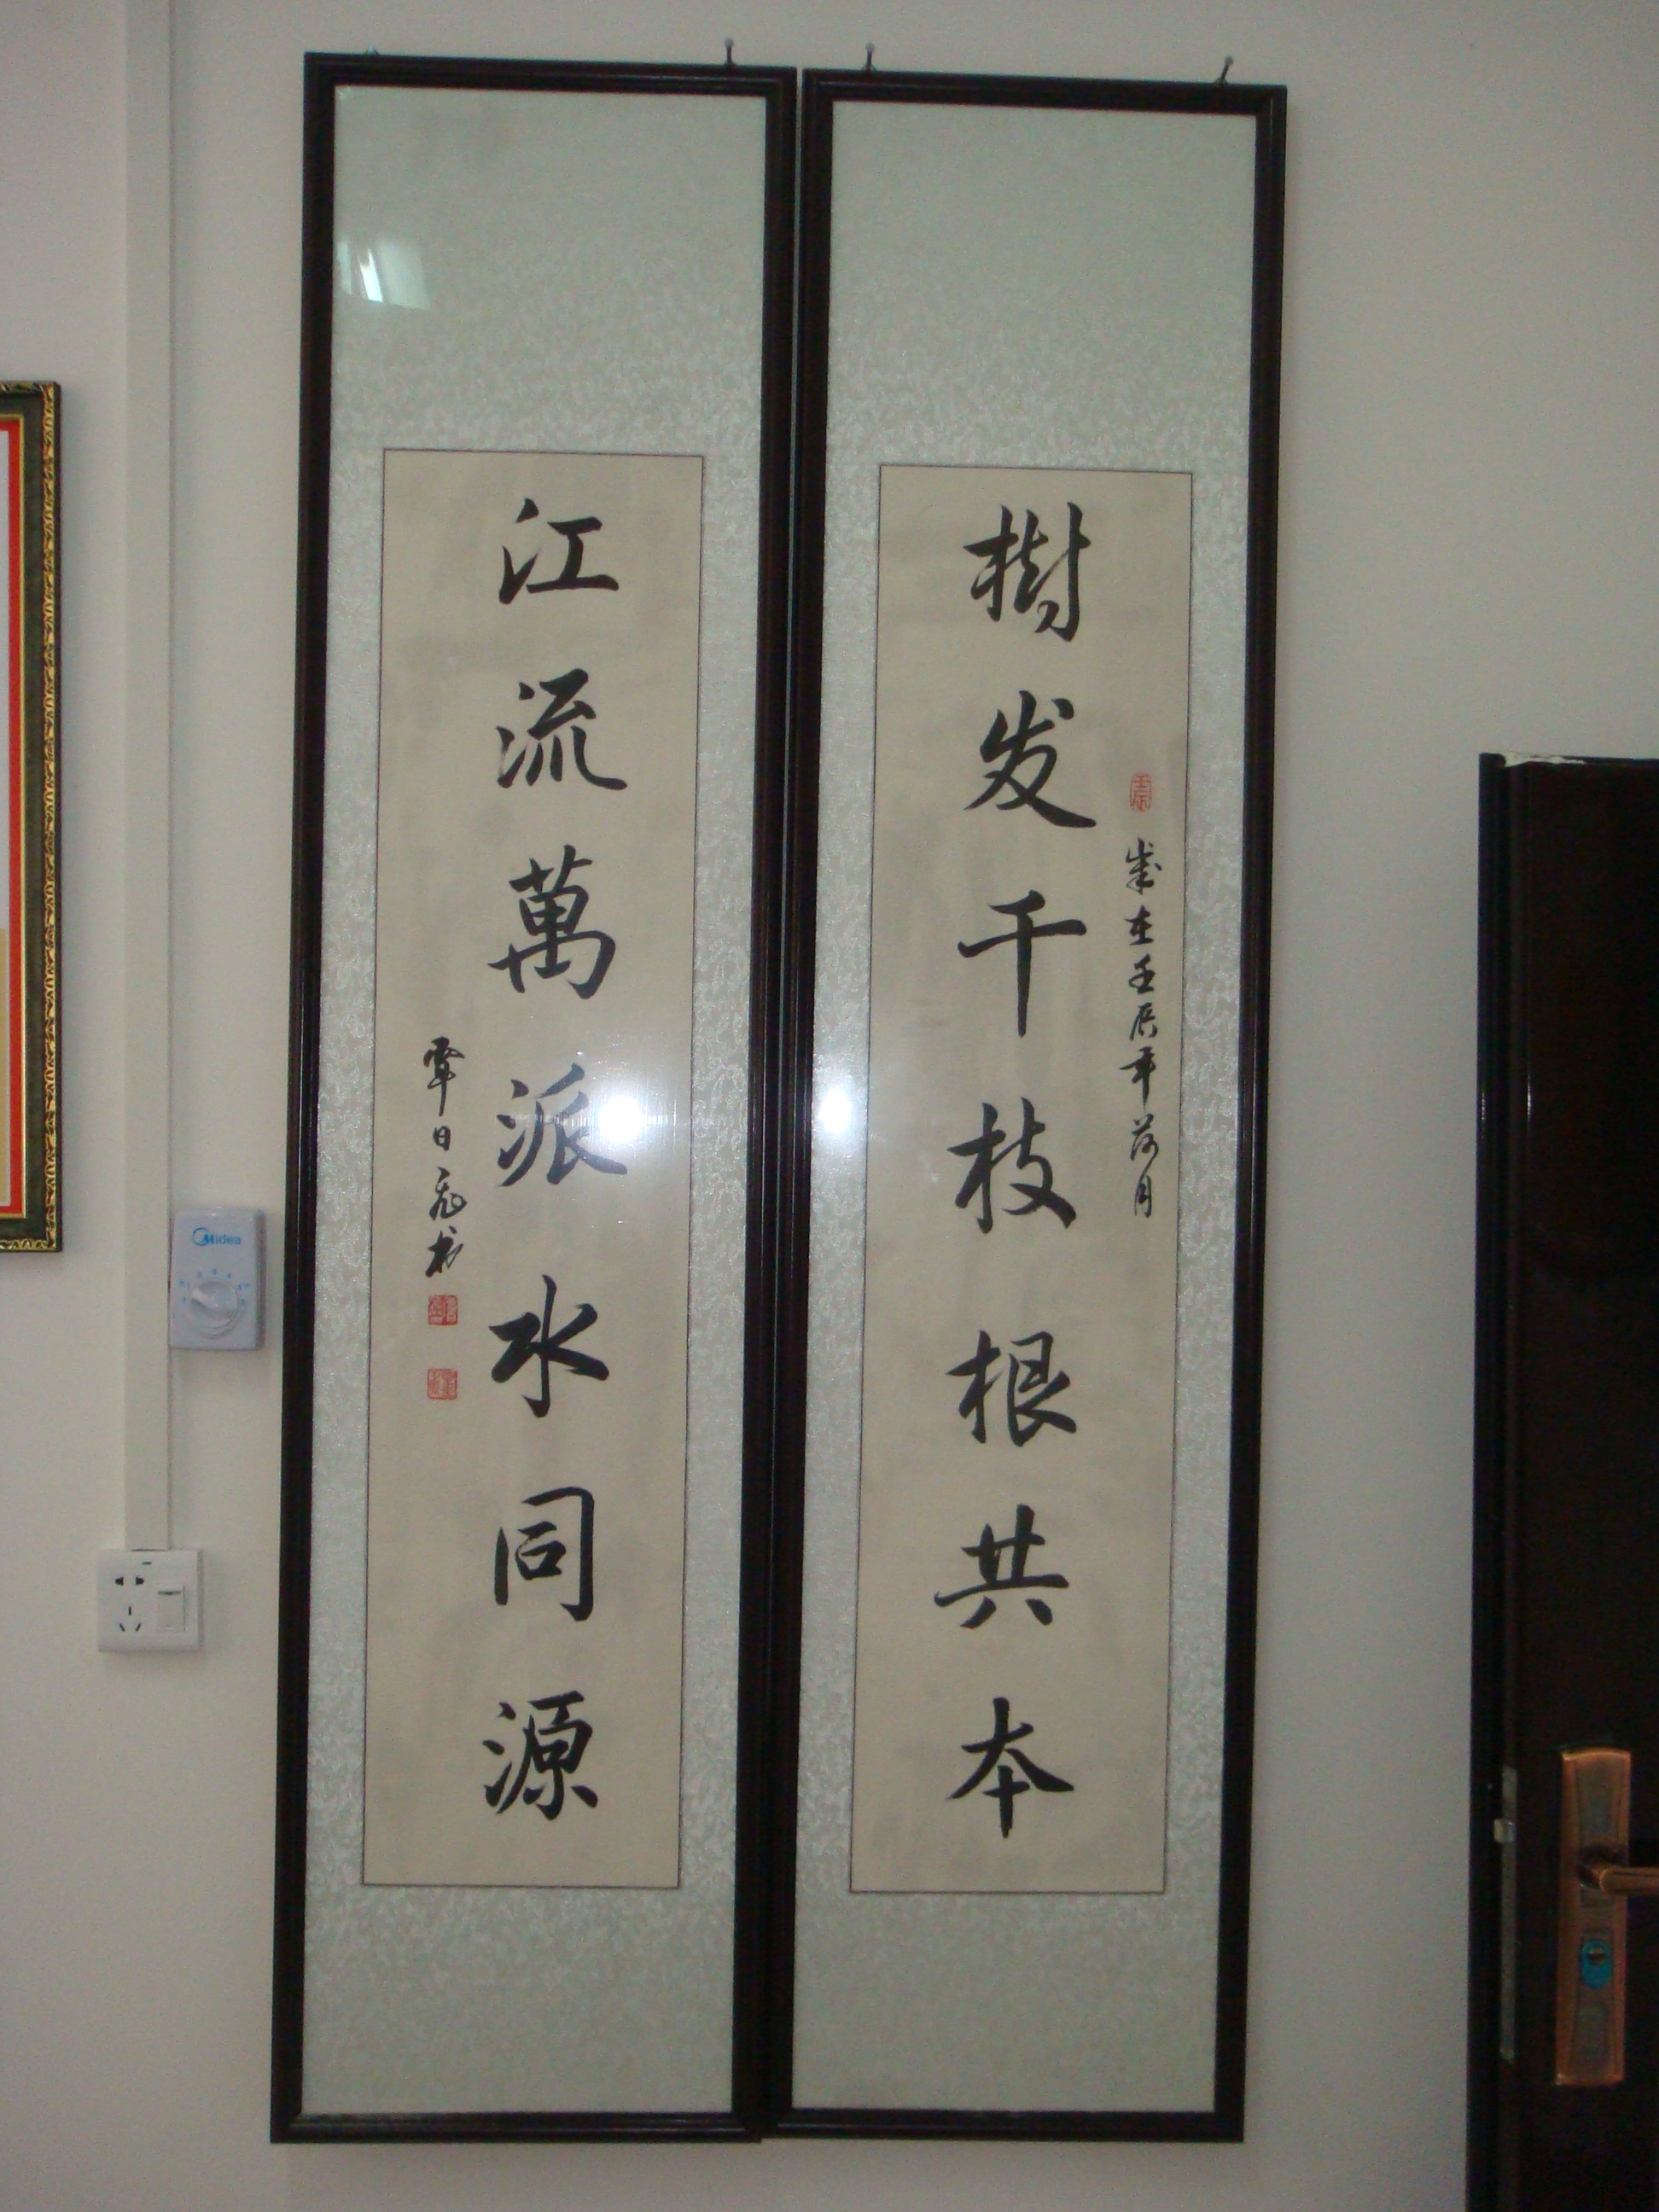 樹发千枝根共本
歲在壬辰年荷月
江流萬派水同源
覃日飛书
Midea